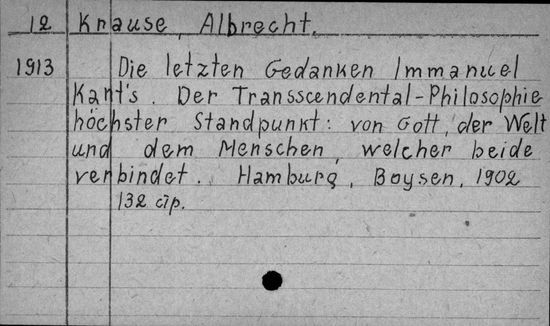 12 Krause, Albrecht.
1913 Die letzten Gedanken Immanuel
Kant's. Der Transscendental-Philosophie
höchster Standpunkt: von Gott, der Welt
und dem Menschen, welcher beide
verbindet. Hamburg, Boysen, 1902
132 стр.